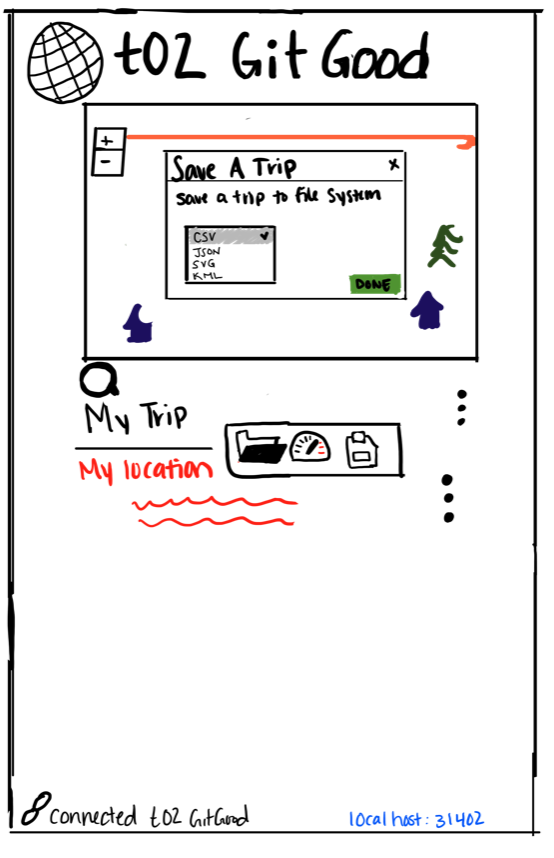 t02 Git Good
+
-
Save A Trip x
save a trip to file system
CSV
JSON
SVG
KML
DONE
My Trip
My location
connected t02 GitGood
localhost: 31402